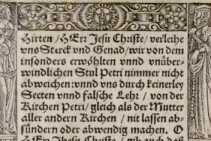 Hirten / HErr Jesu Christe / verleihe
vns Sterck vnd Genad / wir von dem
insonders erwöhlten vnnd vnüber-
windlichen Stul Petri nimmer nicht
abweichen: vnnd vns durch keinerley
Secten vnnd falsche Lehr / von der
Kirchen Petri / gleich als der Mutter
aller andern Kirchen / nit lassen ab-
sündern oder abwendig machen. O
HErr Jhesu Christe / auch auch das